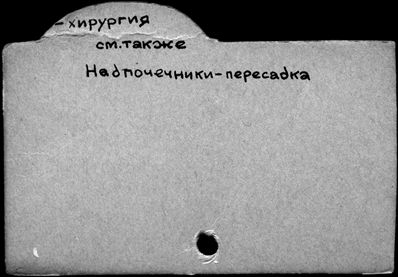 -хирургия
см.также
Надпочечники-пересадка